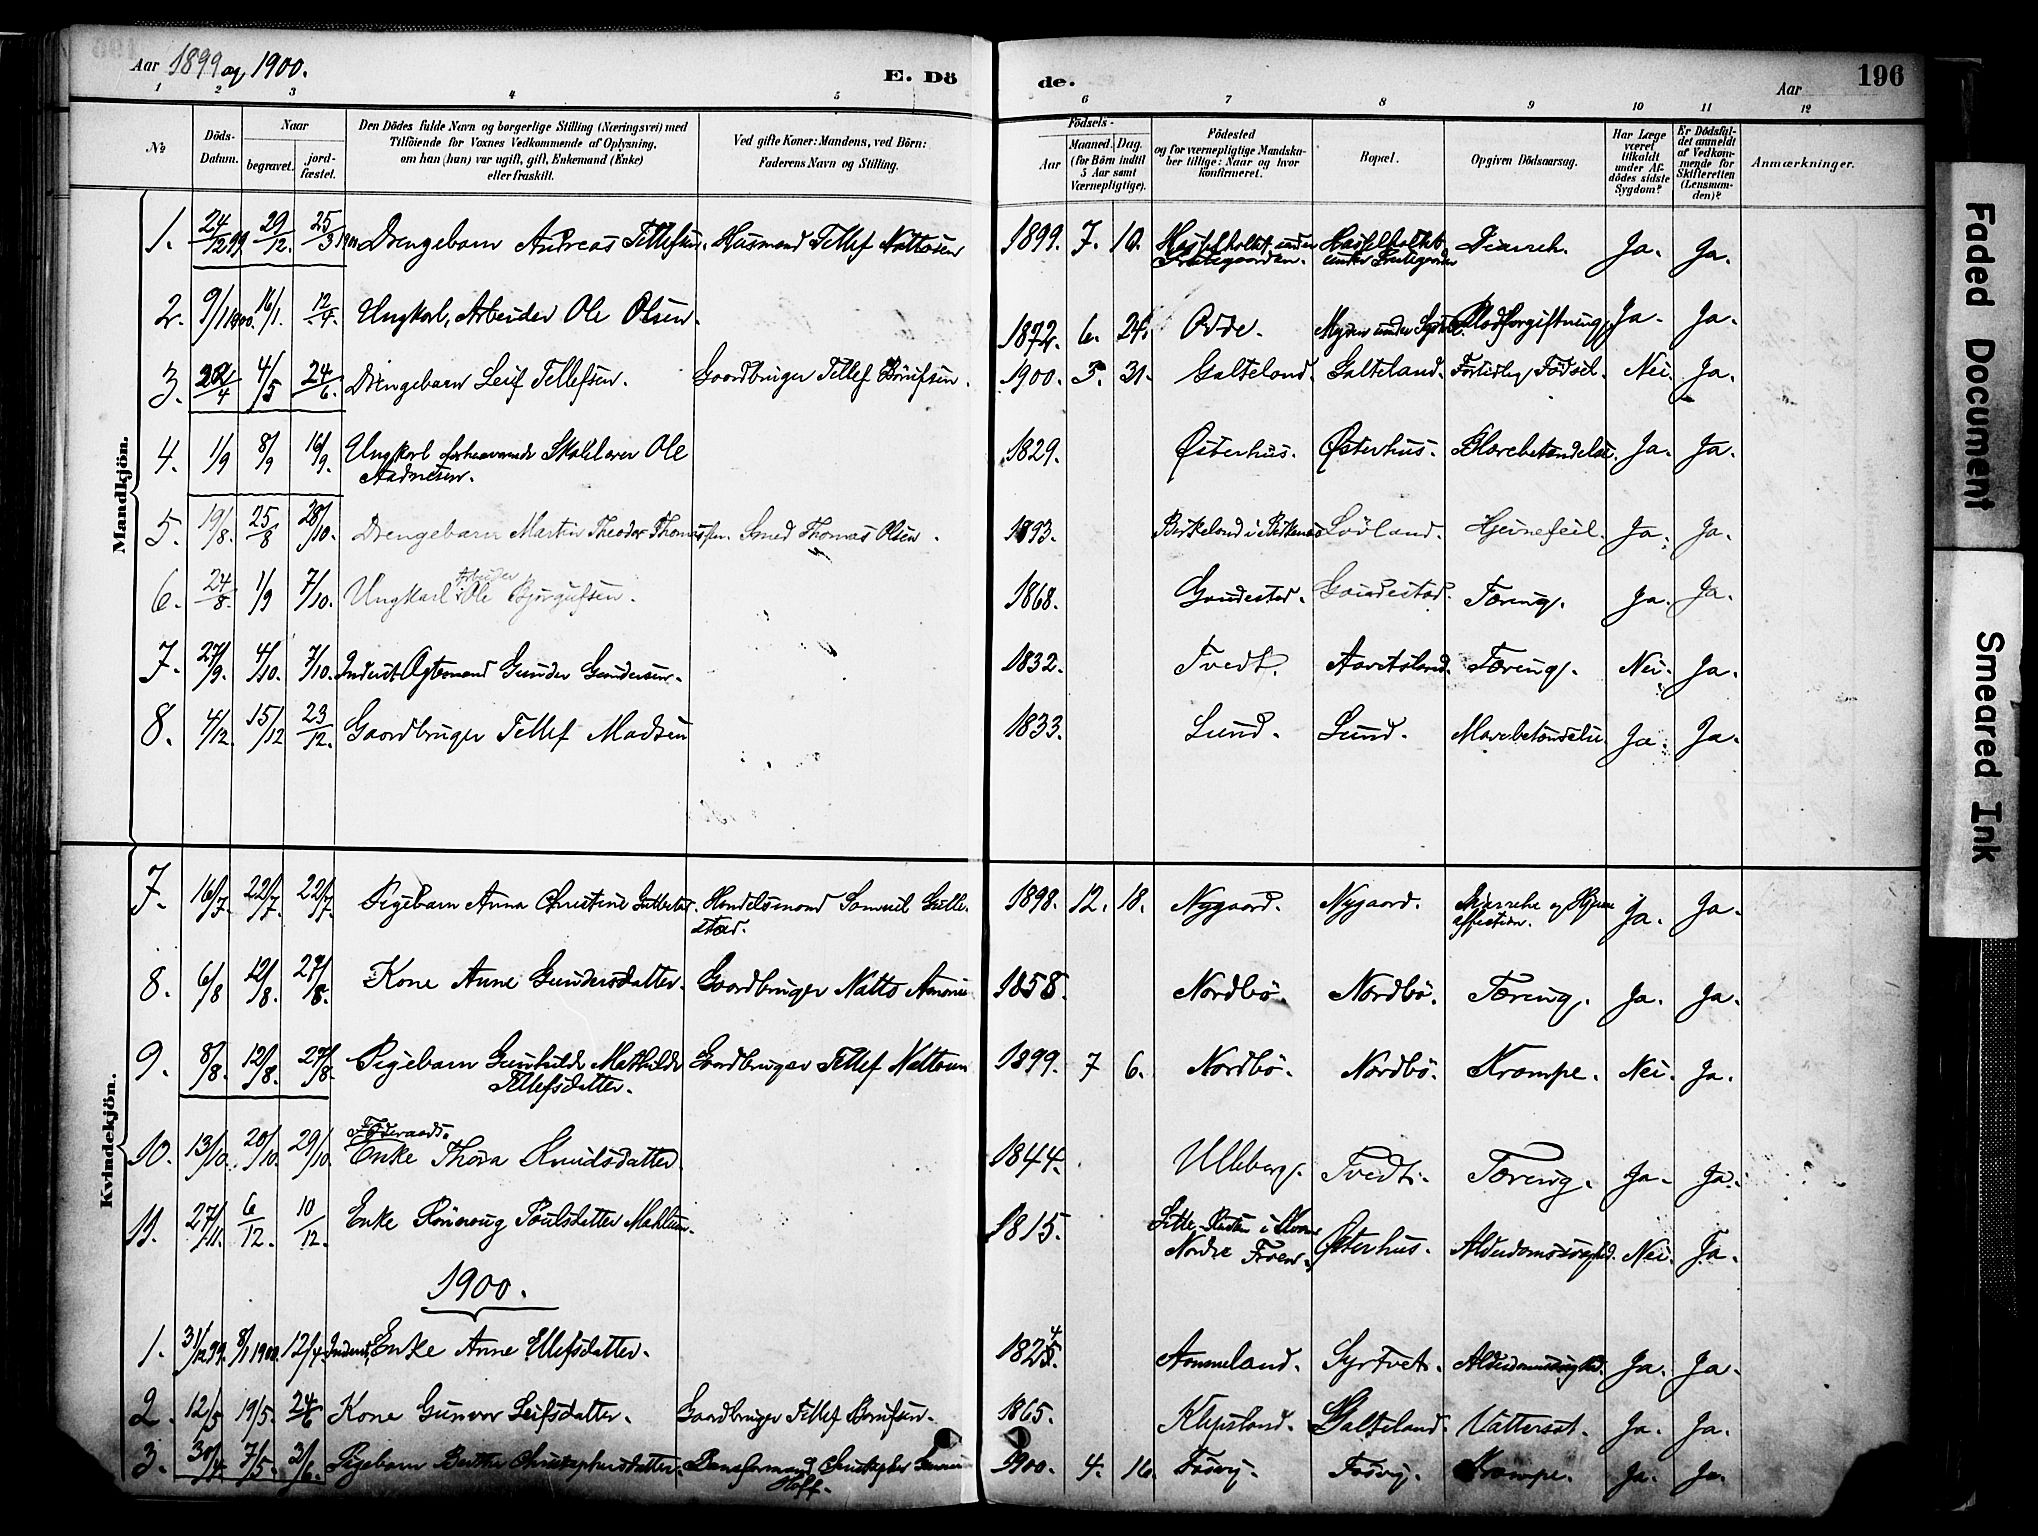 Aar 1899 og 1900.
E. Dö
de.
Aar
196
1 2 3 4 5 6 7 8 9 10 11 12
No
Döds-Datum.
Naar
begravet.
jord-fæstet.
Den Dödes fulde Navn og borgerlige Stilling (Næringsvei) med
Tilföiende for Voxnes Vedkommende af Oplysning,
om han (hun) var ugift, gift, Enkemand (Enke)
eller fraskilt.
Ved gifte Koner: Mandens, ved Börn:
Faderens Navn og Stilling.
Födsels-
Aar
Maaned. Dag.
(for Börn indtil
5 Aar samt
Værnepligtige).
Födested
og for værnepligtige Mandska-
ber tillige: Naar og hvor
konfirmeret.
Bopæl.
Opgiven Dödsaarsag.
Har Læge
været
tilkaldt
under Af-
dödes sidste
Sygdom?
Er Dödsfal-
det anmeldt
af Vedkom-
mende for
Skifteretten
(Lensman-
den)?
Anmærkninger.
Mandkjön.
1. 24/12 99 29/12. 25/3 1900 Drengebarn Andreas Tellefsen. Husmand Tellef Nattosen 1899. 7. 10. Diarreh. Ja. Ja.
2. 9/1 1900. 16/1. 12/4. Ungkarl, Arbeider Ole Olsen. 1872. 6. 24. Odde. Blodforgiftning. Ja. Ja.
3. 28/4 4/5 24/6. Drengebarn Leif Tellefsen. Gaardbruger Tellef Börufsen. 1900. 3. 31. Galteland. Galteland. Fortidlig Födsel. Nei. Ja.
4. 1/9 8/9 16/9. Ungkarl forhenværende Skolelærer Ole
Aadnesen. 1829. Østerhus. Østerhus. Blærebetændelse. Ja. Ja.
5. 19/8. 25/8 28/10. Drengebarn Martin Theodor Thomassen. Smed Thomas Olsen. 1893. Birkeland i Birkenes Lövland. Hjernefeil. Ja. Ja.
6. 24/8. 1/9 7/10. Ungkarl Arbeider Ole Bjorgufsen. 1868. Gaudestad. Gaudestad. Tæring. Ja. Ja.
7. 27/9. 4/10. 7/10. Inderst Ægtemand Gunder Gundersen. 1832. Tvedt. Aavitsland. Tæring. Nei. Ja.
8. 4/12. 15/12 23/12. Gaardbruger Tellef Madsen 1833. Lund. Lund. Mavebetændelse. Ja. Ja.
Kvindekjön.
7. 16/7. 22/7. 22/7. Pigebarn Anna Christine Gullestad. Handelsmand Samuel Gulle-
stad. 1898. 12. 18. Nygaard. Nygaard. Diarrehe og Hjerne
affection. Ja. Ja.
8. 6/8 12/8. 27/8. Kone Anne Gundersdatter. Gaardbruger Natto 1858. Nordbö Nordbö. Tæring. Ja. Ja.
9. 8/8. 12/8. 27/8. Pigebarn Gunhilde Mathilde
Tellefsdatter. Gaardbruger Tellef Nattosen 1899. 7 6. Nordbö. Nordbö. Krampe. Nei. Ja.
10. 13/10. 20/10. 29/10. Föderaads.
Enke Thora Knudsdatter. 1844. Ulleberg. Tvedt. Tæring. Ja. Ja.
11. 27/11. 6/12. 10/12. Enke Rönnaug Poulsdatter Mehlum. 1815. Nordre Froen. Østerhus. Alderdomssvaghed. Nei. Ja.
1900.
1. 31/12 99. 8/1 1900. 12/4. Inderst, Enke Anne Ellefsdatter. 1824. Aommeland. Syrtveit. Alderdomssvaghed. Ja. Ja.
2. 12/5 19/5. 24/6 Kone Gunvor Leifsdatter. Gaardbruger Tellef Börufsen. 1865. Klepsland. Galteland. Vattersot. Ja. Ja.
3. 30/4. 7/5. 3/6. Pigebarn Berthe Christophersdatter. Christopher
Hoff. 1900. 4. 16. Fösvig. Fösvig. Krampe. Ja. Ja.
Faded Document
Smeared Ink